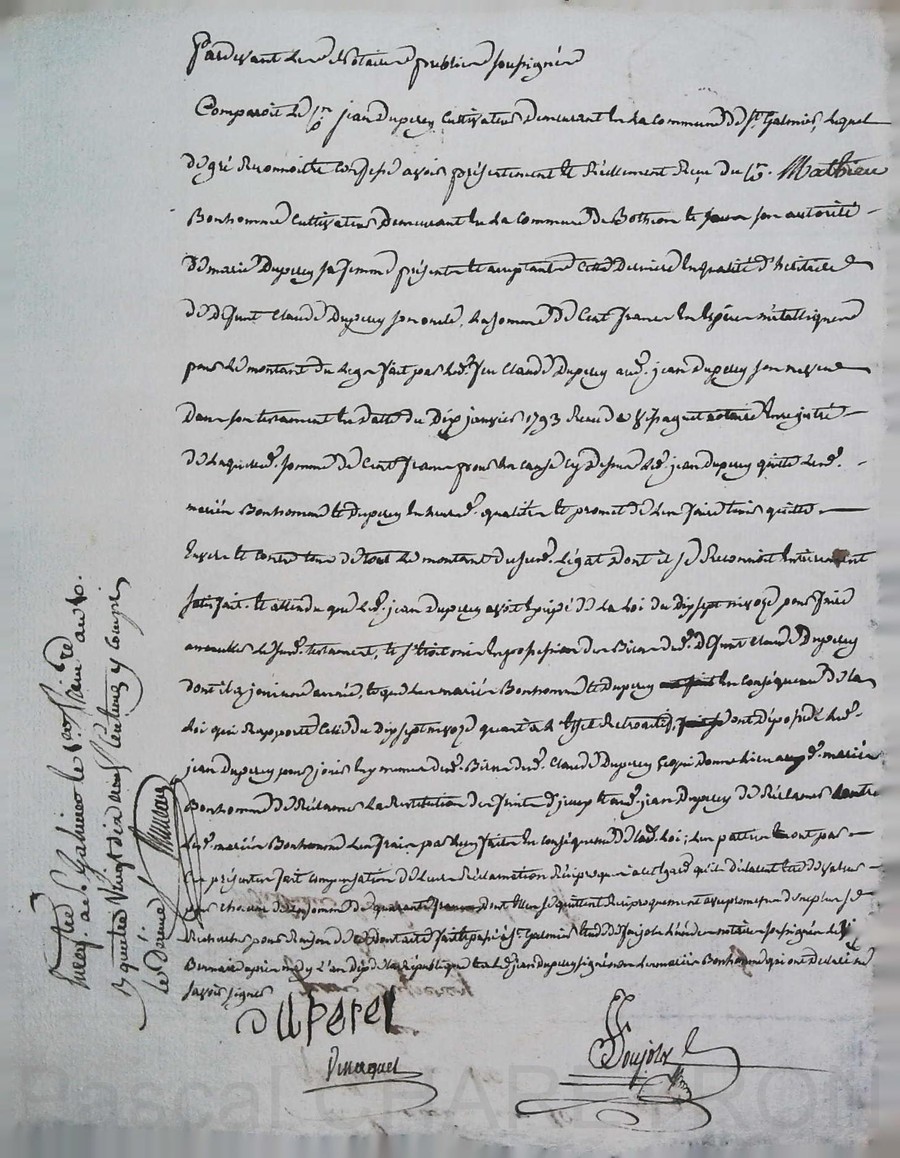 Pardevant Les Notaires publics soussignés
Comparoit Le Sr. jean Duperey Cultivateur Demeurant En La Commune De St. Galmier, Lequel
De gré Reconnoitre Confesse avoir présentement Et Réellement Reçu du Sr. Mathieu
Bonhomme Cultivateur Demeurant En La Commune De Bothéon Et son autorité
De marie Duperey sa femme présente Et acceptante Cette Derniere En qualité d'héritiere
De Défunt Claude Duperey son oncle, La somme De Cent francs En Espèces métalliques
pour Le montant du Legs fait par Led. feu Claude Duperey aud. jean Duperey son neveu
Dans son testament En Datte du Dix janvier 1793 Reçu notaire Enregistré
De Laquelle somme De Cent francs pour Les causes Cy Dessus Led. jean Duperey quitte Lesd.
mariés Bonhomme Et Duperey En leursd. qualités Et promet De Les faire tenir quittes
Envers Et Contre tous De tout Le montant dususd. Légat Dont il se Reconnoit Entierement
satisfait. Et attendu que Led. jean Duperey avoit De La Loi du Dix sept nivose pour faire
annuller Le susd. testament, Et s'Etroit mis En possession Des Biens dud. Défunt Claude Duperey
Dont il a joui une année, Et que Les mariés Bonhomme Et Duperey En Conséquence De La
Loi qui Rapporte Celle du Dix sept nivose quant à L'Effet Retroactif, ont Dépossédé Led.
jean Duperey pour jouir Eux mêmes Desd. Biens dud. Claude Duperey Ce qui Donne Lieu auxd. mariés
Bonhomme De Réclamer La Restitution Des fruits Et aud. jean Duperey De Réclamer Contre
Lesd. mariés Bonhomme Les frais par Luy faits En Conséquence De Lad. Loi; Les parties Ont par
Ces présentes fait Compensation De Leurs Réclamations Réciproques à cet Egard qu'ils Déclarent Etre De valeur
chacune De La somme De quarante francs Dont Elles se quittent Réciproquement avec promesse De ne plus se
Rechercher pour Raison De Ce Dont acte fait Et passé à St. Galmier Etude De Poujols L'un des notaires soussignés Le
Brumaire après midy L'an Dix De La République Et a Led. jean Duperey signé non Les mariés Bonhomme qui ont Déclaré ne
savoir signer
DUPEREY
Poujols
Enregistré à St. Galmier le Brumaire an 10.
Reçu Vingt dix neuf Centimes y Compris
le Decime.